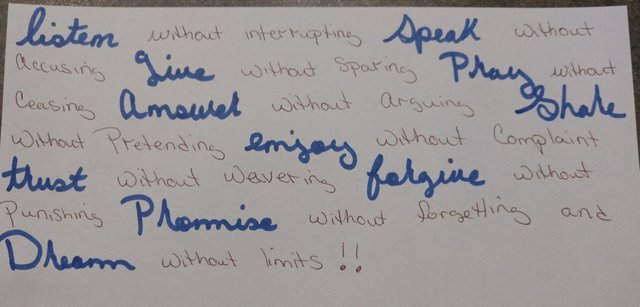 listen without interrupting Speak without
accusing Give without Sparing Pray without
Ceasing Answer without arguing Share
without Pretending enjoy without Complaint
trust without wavering forgive without
Punishing Promise without forgetting and
Dream without limits !!